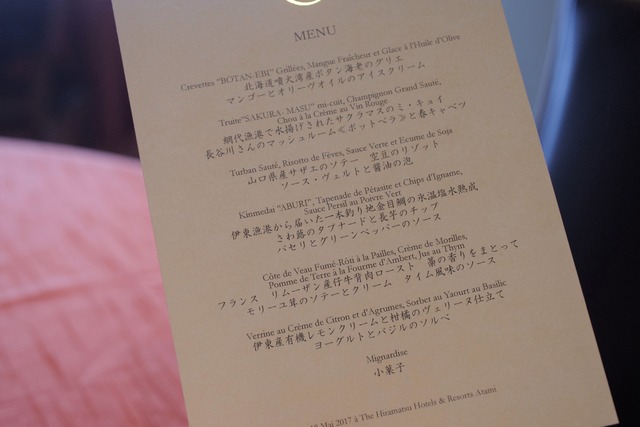 MENU
Crevettes "BOTAN-EBI" Grillées, Mangue Fraîcheur et Glace à l'Huile d'Olive
北海道噴火湾産ボタン海老のグリエ
マンゴーとオリーヴオイルのアイスクリーム
Truite"SAKURA- MASU" mi-cuit, Champignon Grand Sauté,
Chou à la Crème au Vin Rouge
網代漁港で水揚げされたサクラマスのミ・キュイ
長谷川さんのマッシュルーム≪ポットベラ≫と春キャベツ
Turban Sauté, Risotto de Fèves, Sauce Verte et Ecume de Soja
山口県産サザエのソテー 空豆のリゾット
ソース・ヴェルトと醤油の泡
Kinmedai "ABURI", Tapenade de Pétasite et Chips d'Igname,
Sauce Persil au Poivre Vert
伊東漁港から届いた一本釣り地金目鯛の氷温塩水熟成
さわ蕗のタプナードと長芋のチップ
パセリとグリーンペッパーのソース
Côte de Veau Fumé-Rôti à la Pailles, Crème de Morilles,
Pomme de Terre à la Fourme d'Ambert, Jus au Thym
フランス リムーザン産仔牛背肉ロースト 藁の香りをまとって
モリーユ茸のソテーとクリーム タイム風味のソース
Verrine au Crème de Citron et d'Agrumes, Sorbet au Yaourt au Basilic
伊東産有機レモンクリームと柑橘のヴェリーヌ仕立て
ヨーグルトとバジルのソルベ
Mignardise
小菓子
18 Mai 2017 à The Hiramatsu Hotels & Resorts Atami